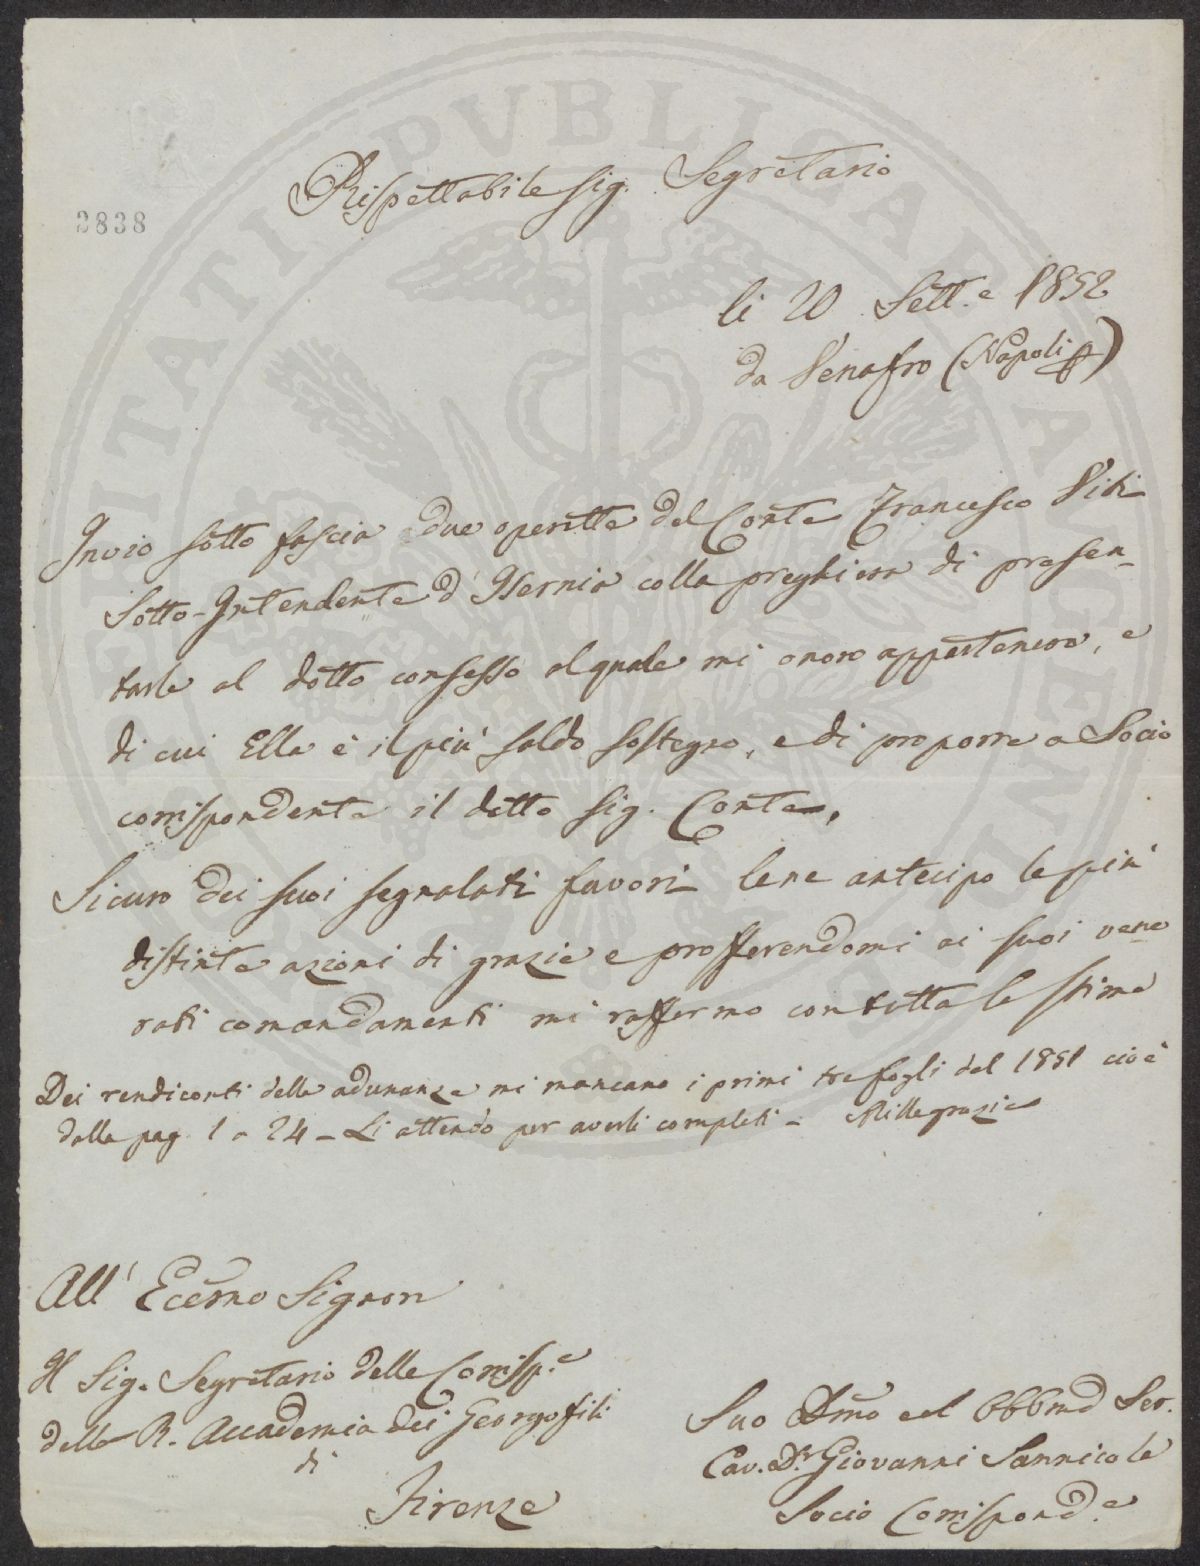 PROSPERITATI PVBLICAE AVGENDAE
Rispettabile Sig. Segretario
2838
li 20 Sett.e 1852
da Venafro (Napoli)
Invio sotto fascia due operette del Conte Francesco Viti
Sotto-Intendente d'Isernia colla preghiera di presen-
tarle al dotto consesso al quale mi onoro appartenere, e
di cui Ella è il più saldo sostegno, e di proporre a Socio
corrispondente il detto Sig. Conte.
Sicuro dei suoi segnalati favori lene antecipo le più
distinte azioni di grazie e profferendomi ai suoi vene
rati comandamenti mi raffermo con tutta la stima
Dei rendiconti delle adunanze mi mancano i primi tre fogli del 1851 cioè
dalla pag. 1 a 24 - Li attendo per averli completi - Mille grazie
All' Eccmo Signore
Il Sig. Segretario delle Corrisp.e
della R. Accademia dei Georgofili
di
Firenze
Suo Dmo ed Obbmo Ser.
Cav. Dr Giovanni Sannicola
Socio Corrispond.e